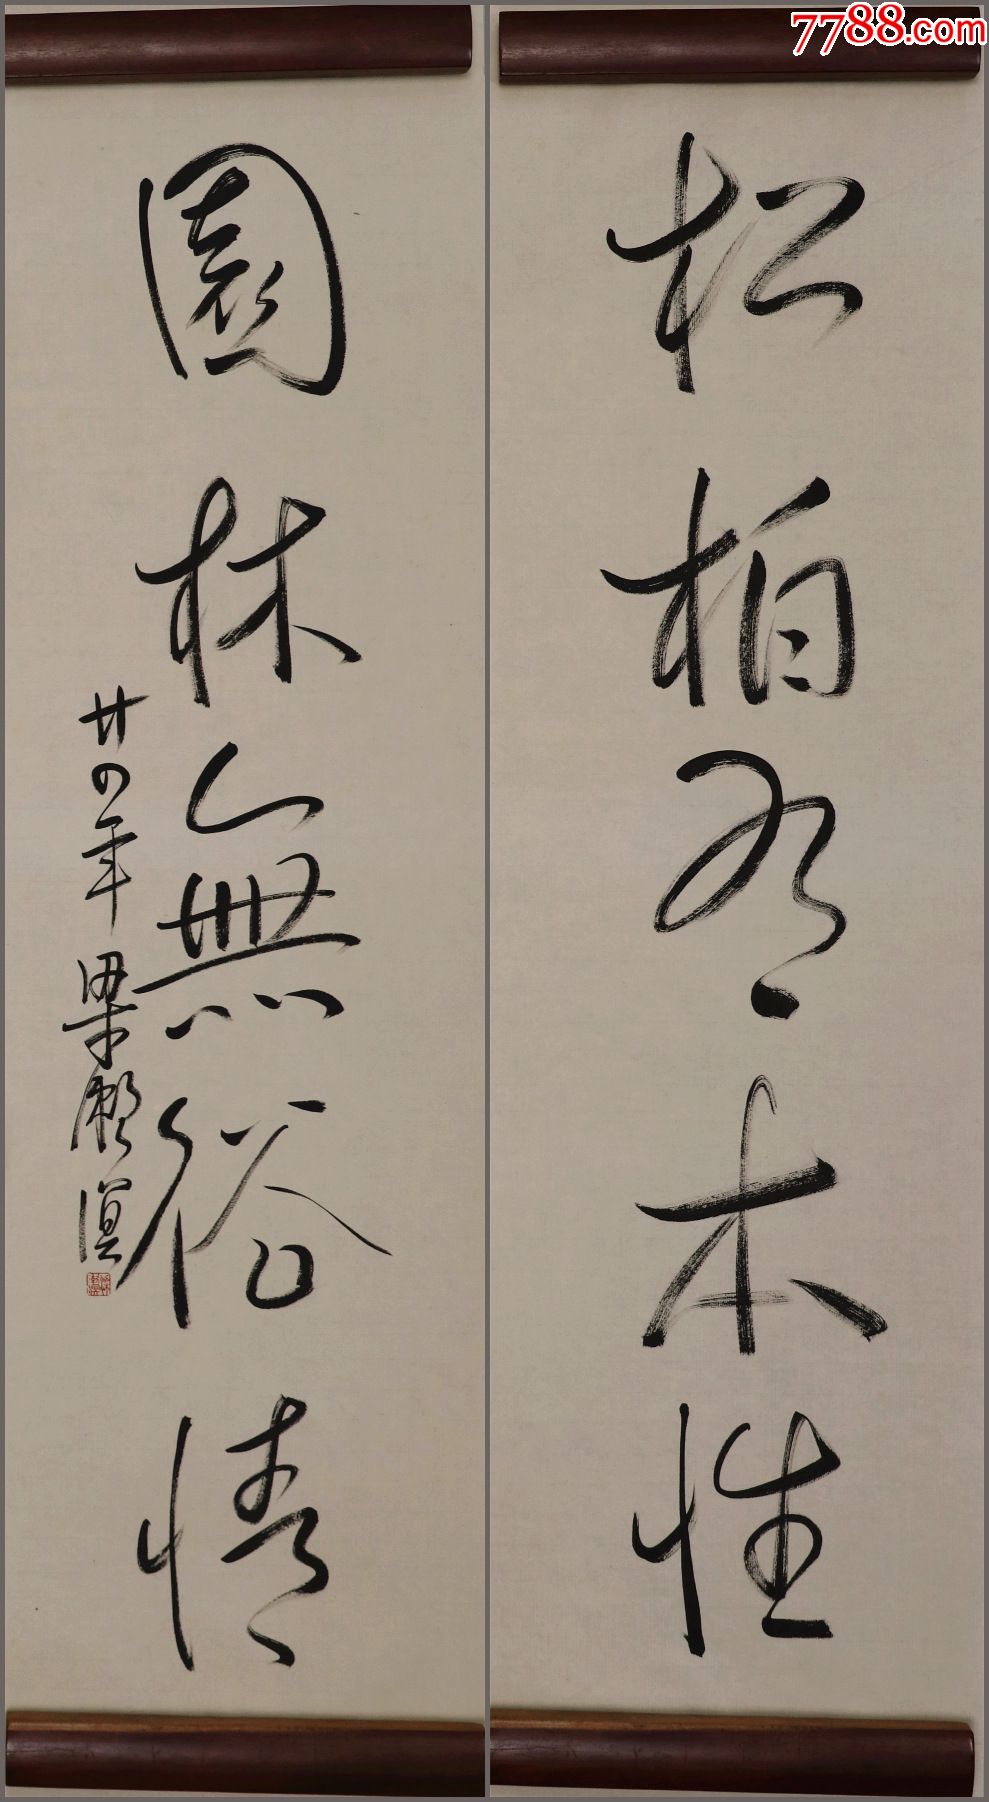 7788.com
松柏有本性
園林無俗情
廿四年 畢